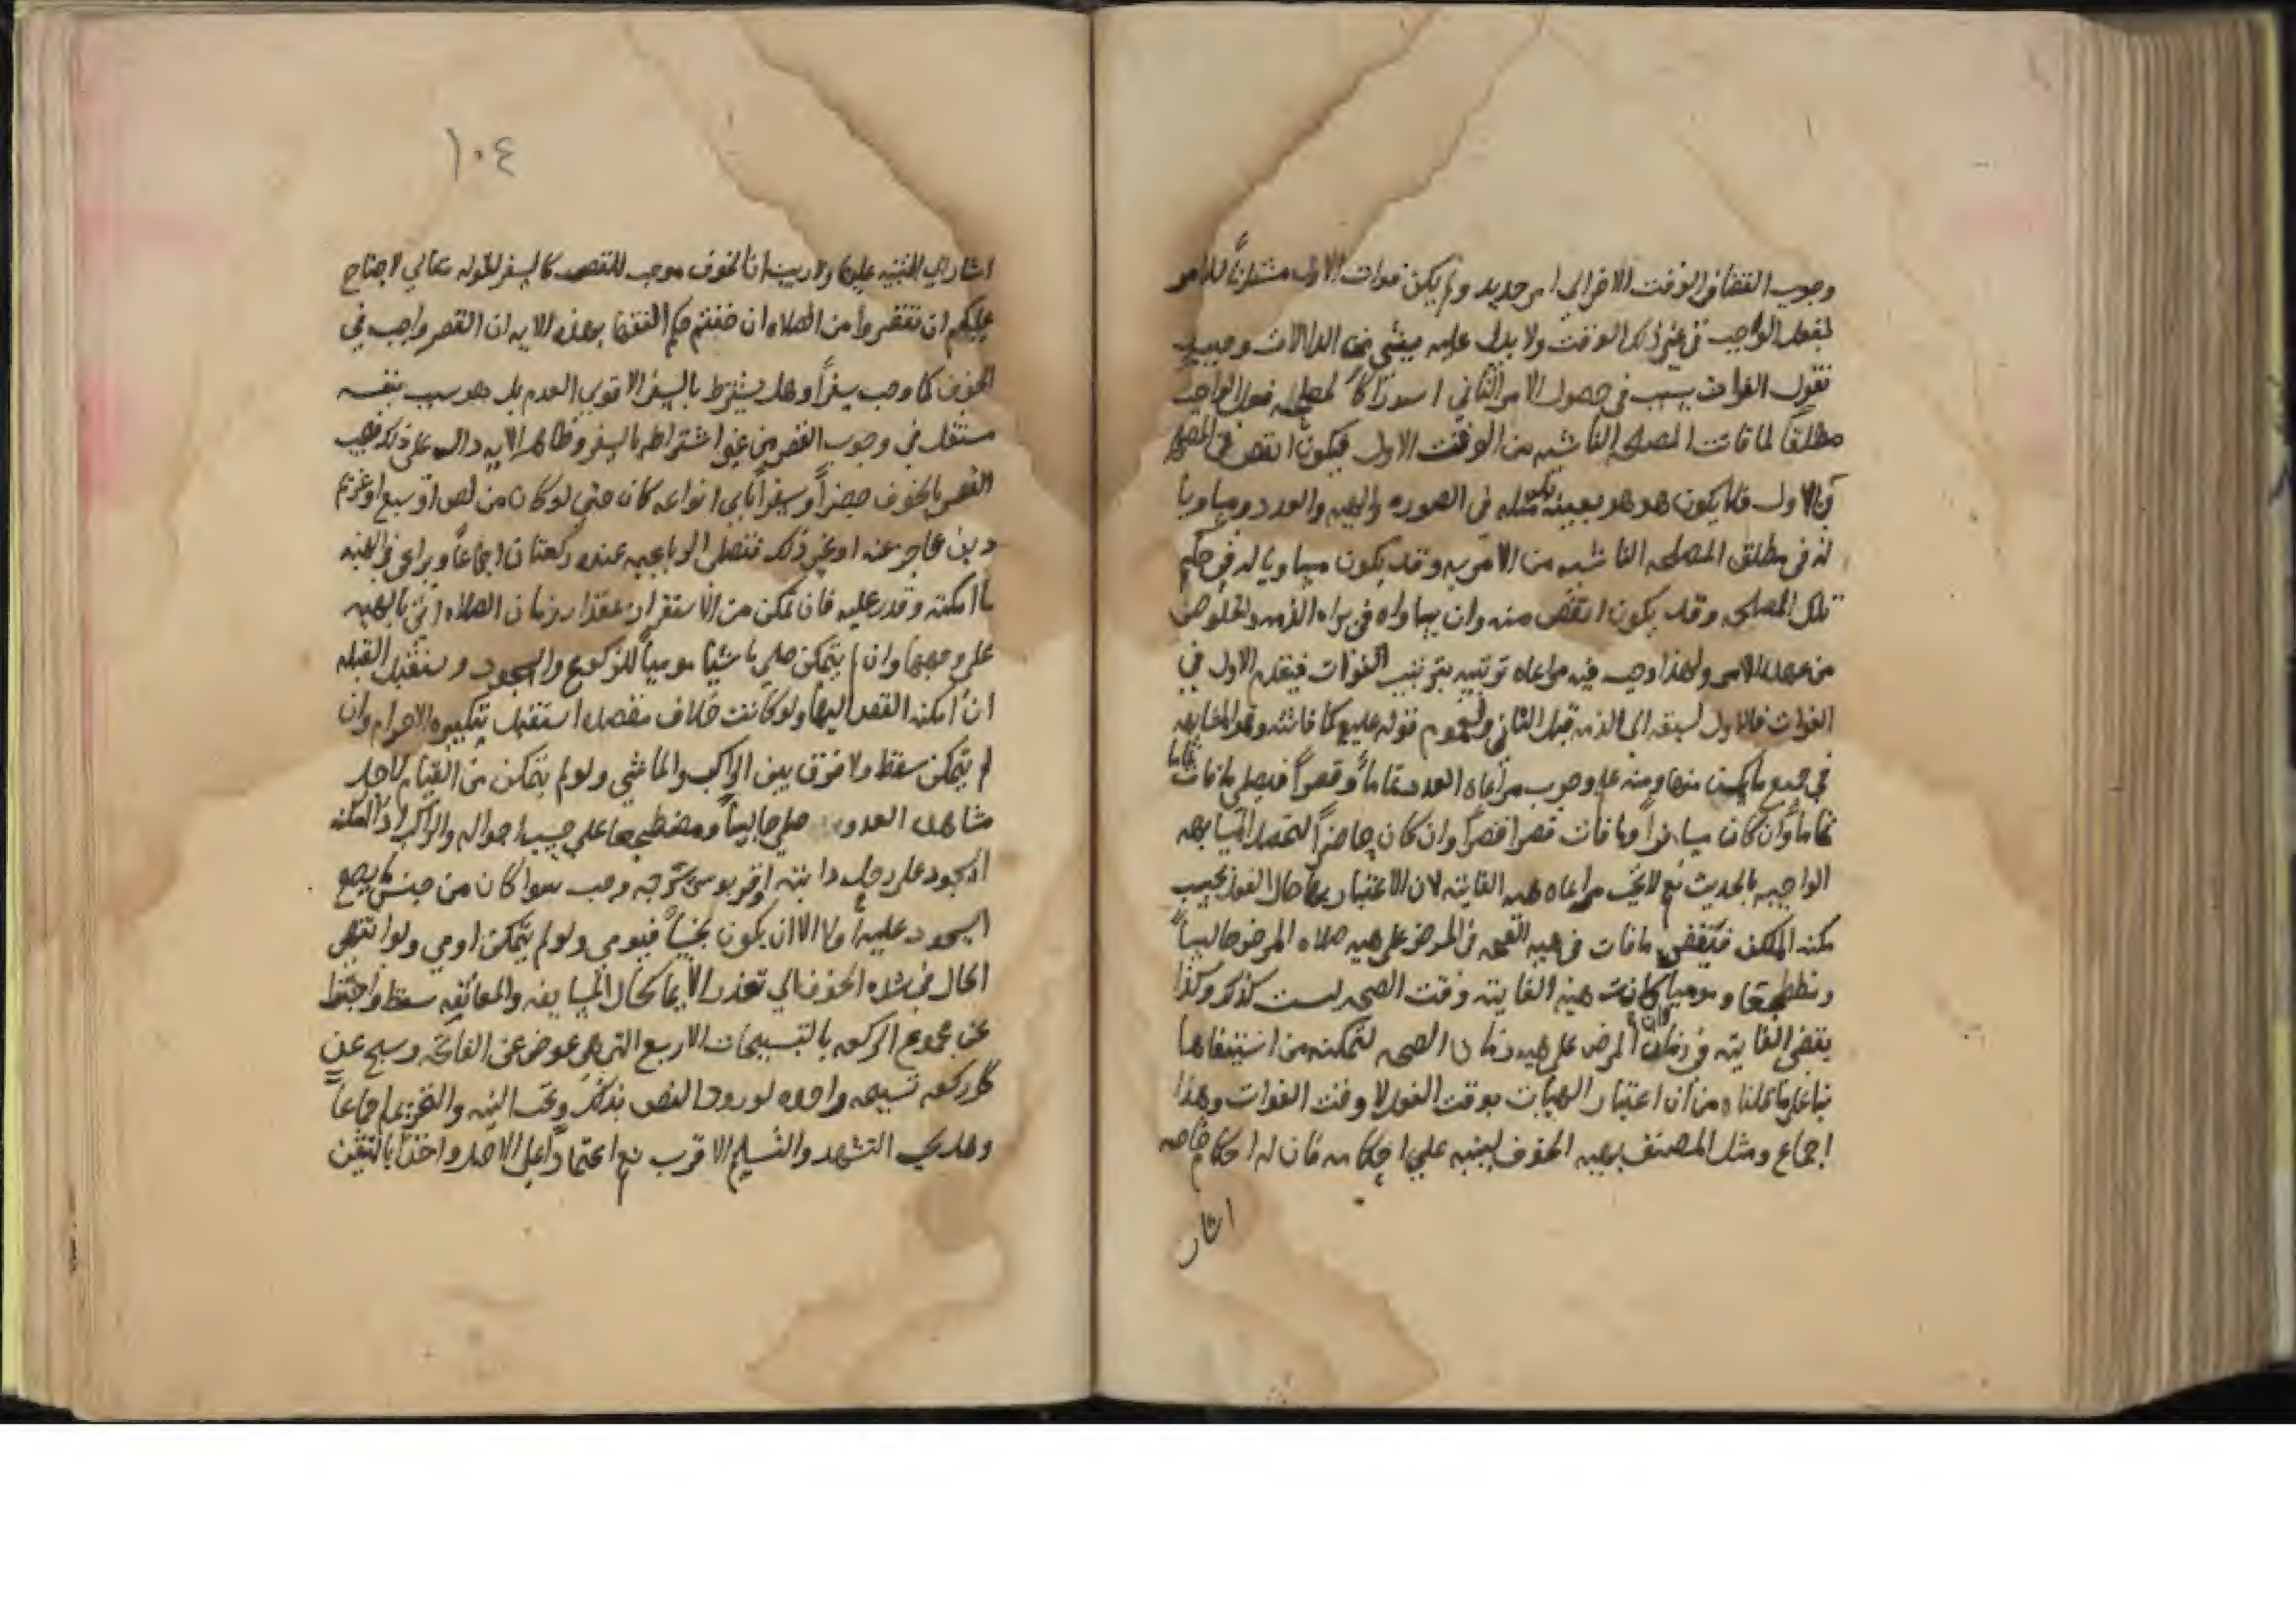 وجوب القضا فى الوقت الاخر الى امر جديد ولم يكن فوات الاول مستلزماً للامر
لفعل الواجب فى غير ذلك الوقت ولا يدل عليه بشي من الدالات وحينئذ
نقول الفوات سبب فى حصول الامر الثاني استدراكاً لمصلحه فعل الواجب
مطلقاً لما فات المصلحه الناشيه من الوقت الاول فيكون انقص فى المصلحه
من الاول فلا يكون هو هو بعينه بل مثله فى الصوره والهيه والعدد ومساويا
له فى مطلق المصلحه الناشيه من الامر به وقد يكون مساويا له فى حكم
تلك المصلحه وقد يكون انقص منه وان ساواه فى براه الذمه والخلوص
من عهدة الامر ولهذا وجب فيه مراعاه ترتيبه بترتيب الفوات فيقدم الاول فى
الفوات فالاول لسبقه الى الذمه قبل الثاني ولعموم قوله عليه كما فاتته وهو المشابهه
فى جميع ما يمكن منها ومنه علم وجوب مراعاه العدد تماماً وقصراً فيصلى ما فات تماما
تماماً وان كان مسافراً وما فات قصرا قصراً وان كان حاضراً لتحصل المشابهه
الواجبه بالحديث نعم لا يجب مراعاه هيه الفايته لان الاعتبار بها حال الفعل بحسب
مكنه المكلف فيقضى ما فات فى هيه الصحه فى المرض على هيه صلاه المرض جالساً
ومضطجعا وموميا وان كانت هيه الفايته وقت الصحه ليست كذلك وكذا
يقضى الفايته فى زمان المرض على هيه زمان الصحه لتمكنه من استيفاها
بنا على ما قلناه من ان اعتبار الهيات بوقت الفعل لا وقت الفوات وهذا
اجماع ومثل المصنف بهيه الخوف لينبه على احكامه فان له احكام خاصه
اشار
١٠٤
اشار الى التنبيه عليها ولا ريب ان الخوف موجب للقصر كالسفر لقوله تعالى لا جناح
عليكم ان تقصروا من الصلاه ان خفتم حكم الفقها بهذه الايه ان القصر واجب فى
الخوف كما وجب سفراً وهل يشترط بالسفر الاقوى العدم بل هو سبب بنفسه
مستقل فى وجوب القصر من غير اشتراطه بالسفر وظاهر الايه دال على ذلك فيجب
القصر بالخوف حضراً وسفراً باى انواعه كان حتى لو كان من لص او سبع او غريم
دين عاجز عنه او غير ذلك فتصلى الرباعيه عنده ركعتان اجماعاً ويراعى فى الهيه
ما امكنه وقدر عليه فان تمكن من الاستقرار مقدار زمان الصلاه اتى بالهيه
على وجهها وان لم يتمكن صلى ماشيا موميا للركوع والسجود ويستقبل القبله
ان امكنه القصد اليها ولو كانت خلاف مقصده استقبل بتكبيره الاحرام وان
لم يتمكن سقط ولا فرق بين الراكب والماشي ولو لم يتمكن من القيام لاجل
مشاهده العدو صلى جالساً ومضطجعا على حسب احواله والراكب اذا امكنه
السجود على رحل دابته او قربوس سرجه وجب سوا كان من جنس ما يصح
السجود عليه او لا الا ان يكون نجساً فيومى ولو لم يتمكن اومى ولو انتهى
الحال فى شده الخوف الى تعذر الايما كحال المسايفه والمعانقه سقط واجتزا
عن مجموع الركعه بالتسبيحات الاربع التى هى عوض عن الفاتحه وسبح عن
كل ركعه تسبيحه واحده لورود النص بذلك وتجب النيه والتحريمه اجماعاً
وهل يجب التشهد والتسليم الاقرب نعم اعتماداً على الاصل واخذاً باليقين